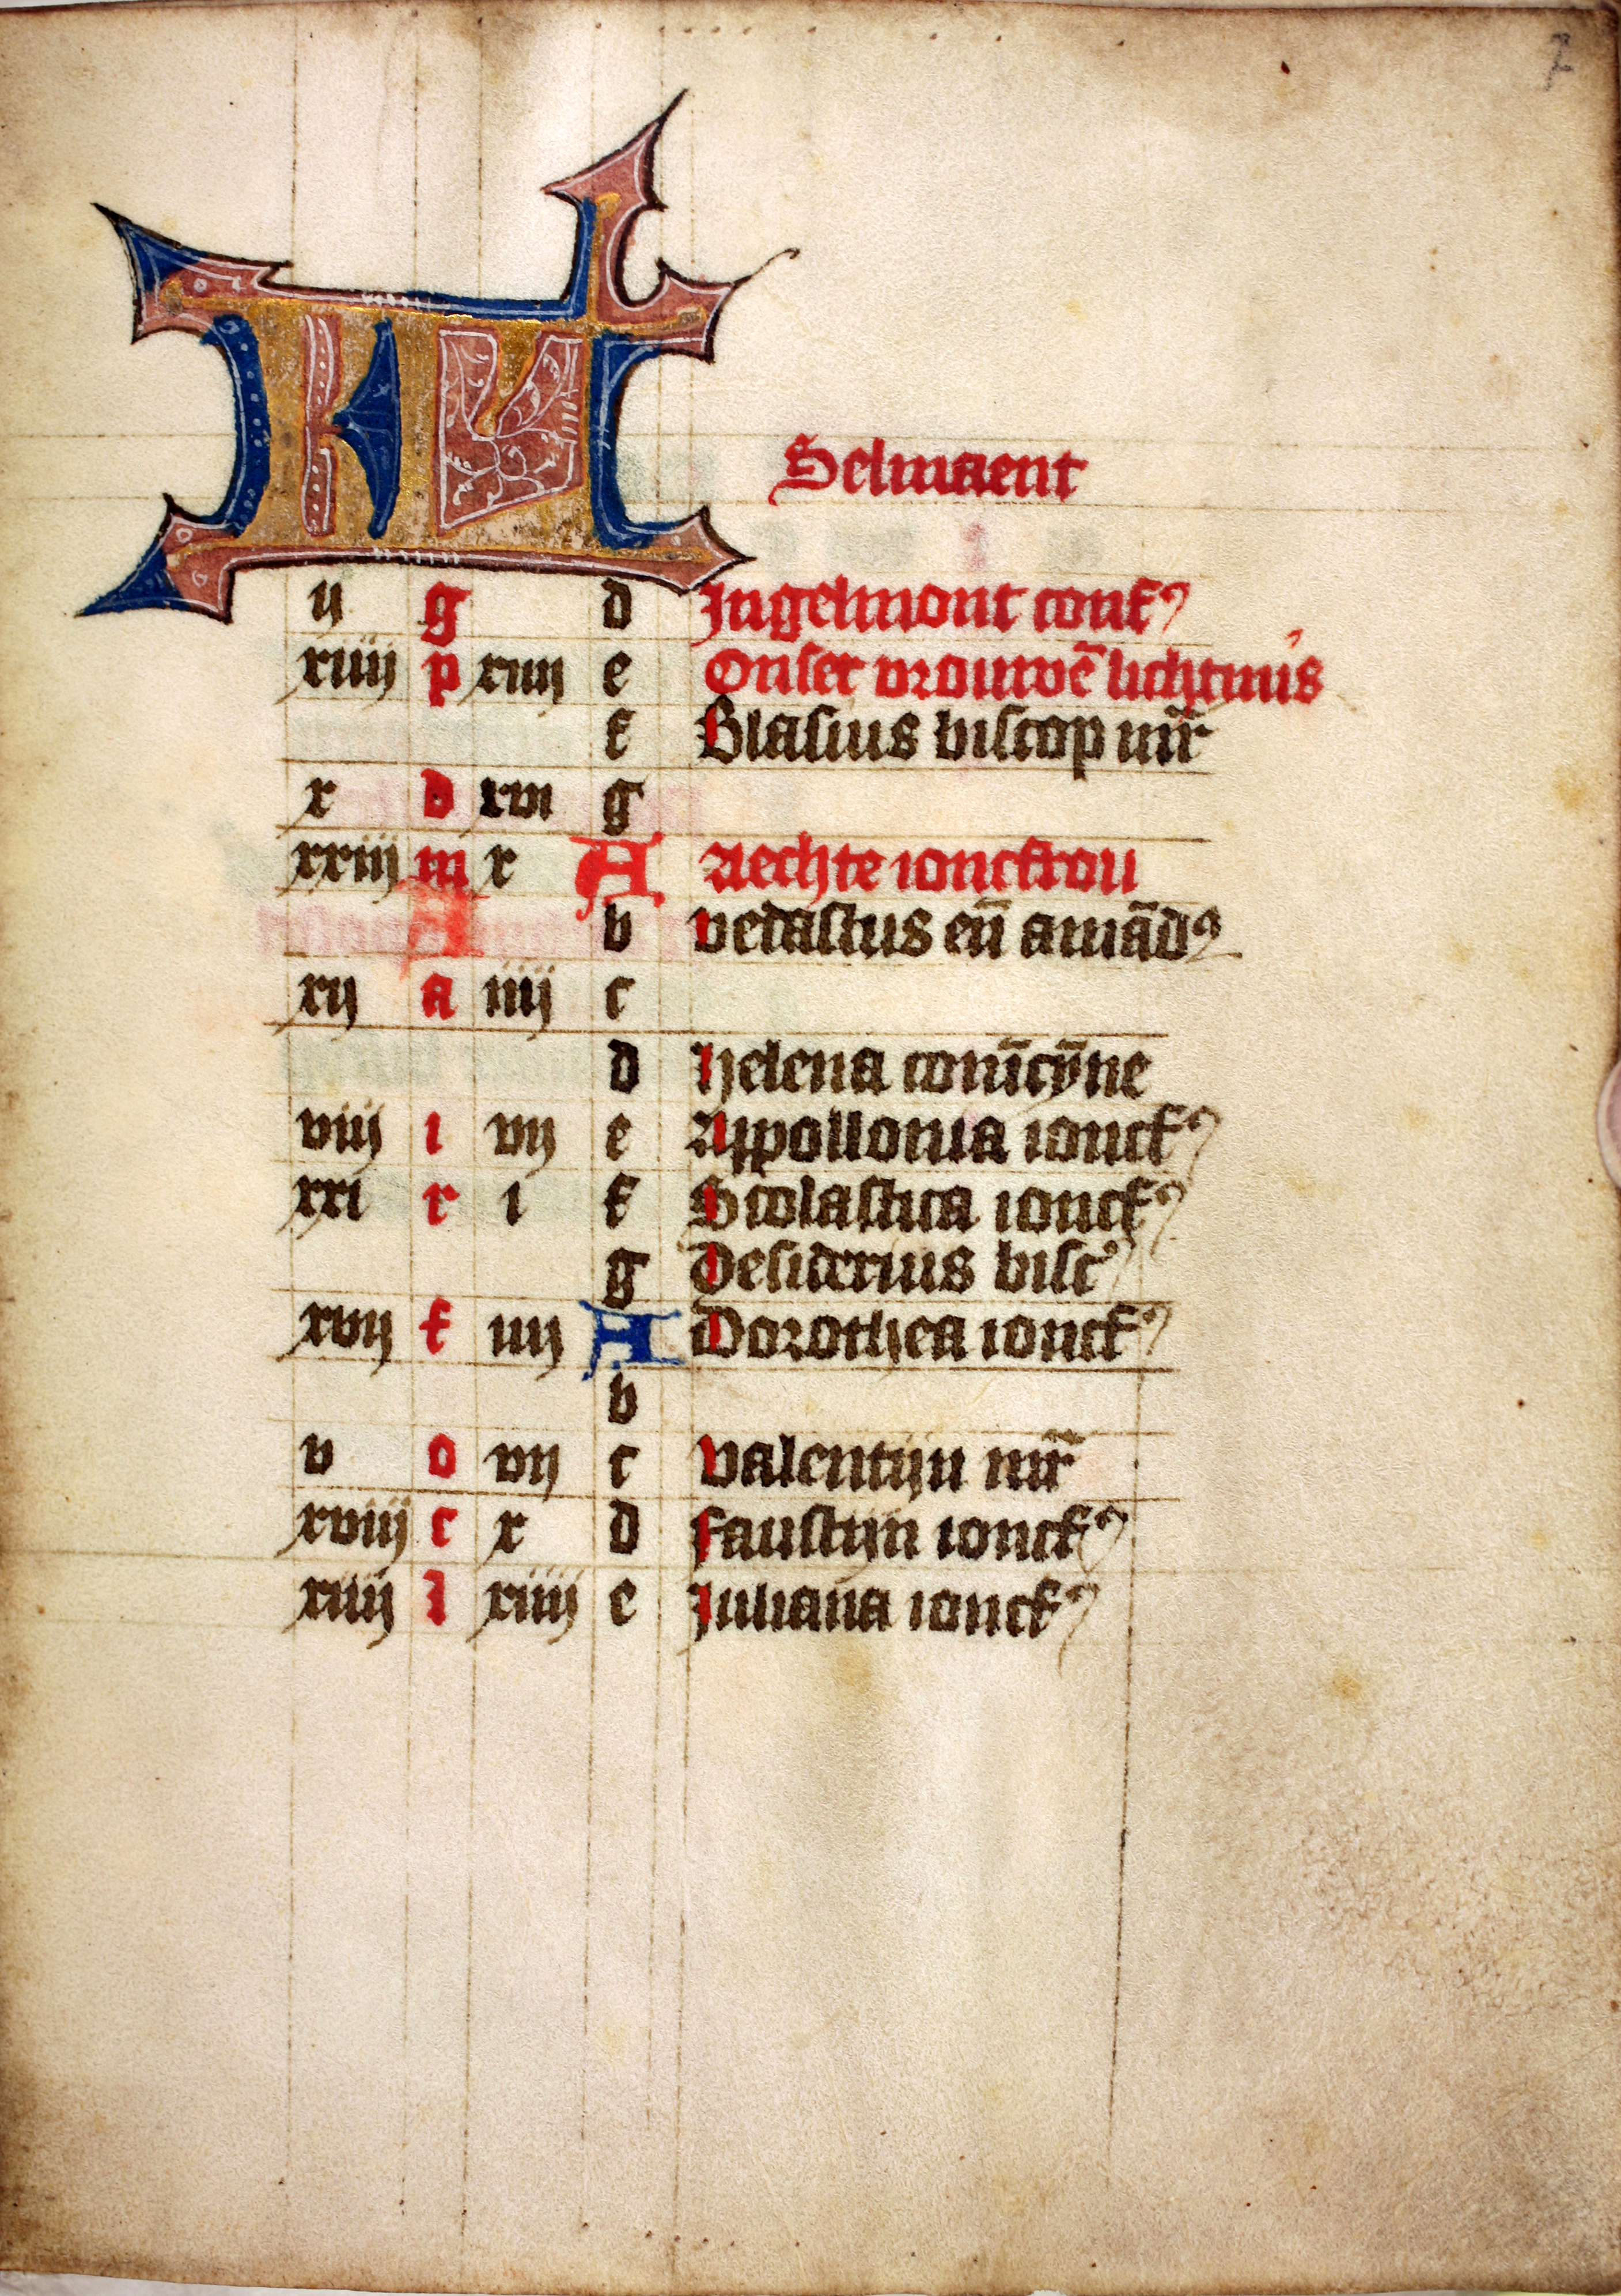 2
KL Selmaent
ij g d Jngelmont conf⁹
xiiij p xiiij e Onser vrouwē lichtmis
f Blasius biscop mr̄
x d xvi g
xxiij m x A Aechte ioncfrou
b vedastus eñ amād⁹
xij a iiij c
d helena coniīcȳne
viij i vij e Appollonia ioncf⁹
xxi r i f Scolastica ioncf⁹
g Desiderius bisc⁹
xvij f iiij A Dorothea ioncf⁹
b
v o vij c valentijn mr̄
xviij c x d faustijn ioncf⁹
xiiij l xiiij e Juliana ioncf⁹